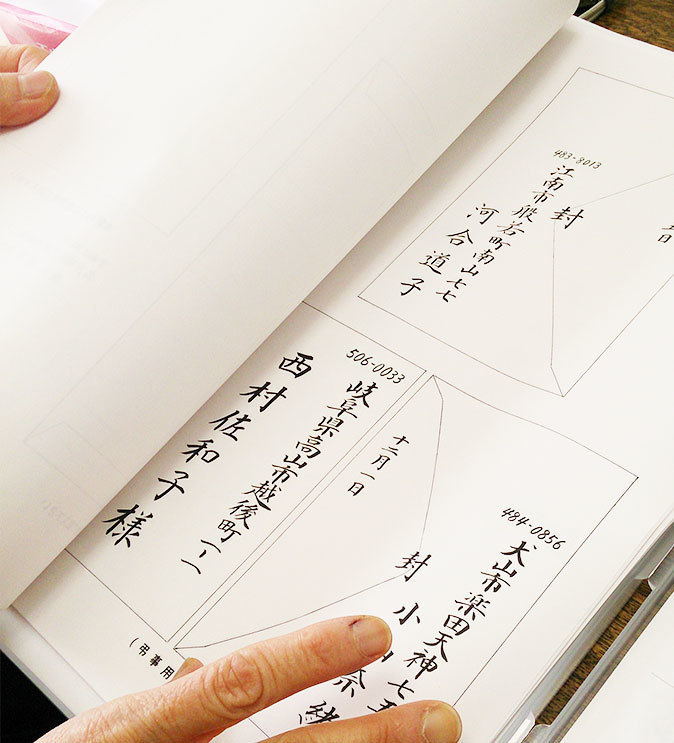 483-8013
江南市般若町南山七七
封
河合道子
日
506-0033
岐阜県高山市越後町一ー一
西村佐和子様
484-0856
犬山市楽田天神七五
封
小
奈緒
十二月一日
(弔事用